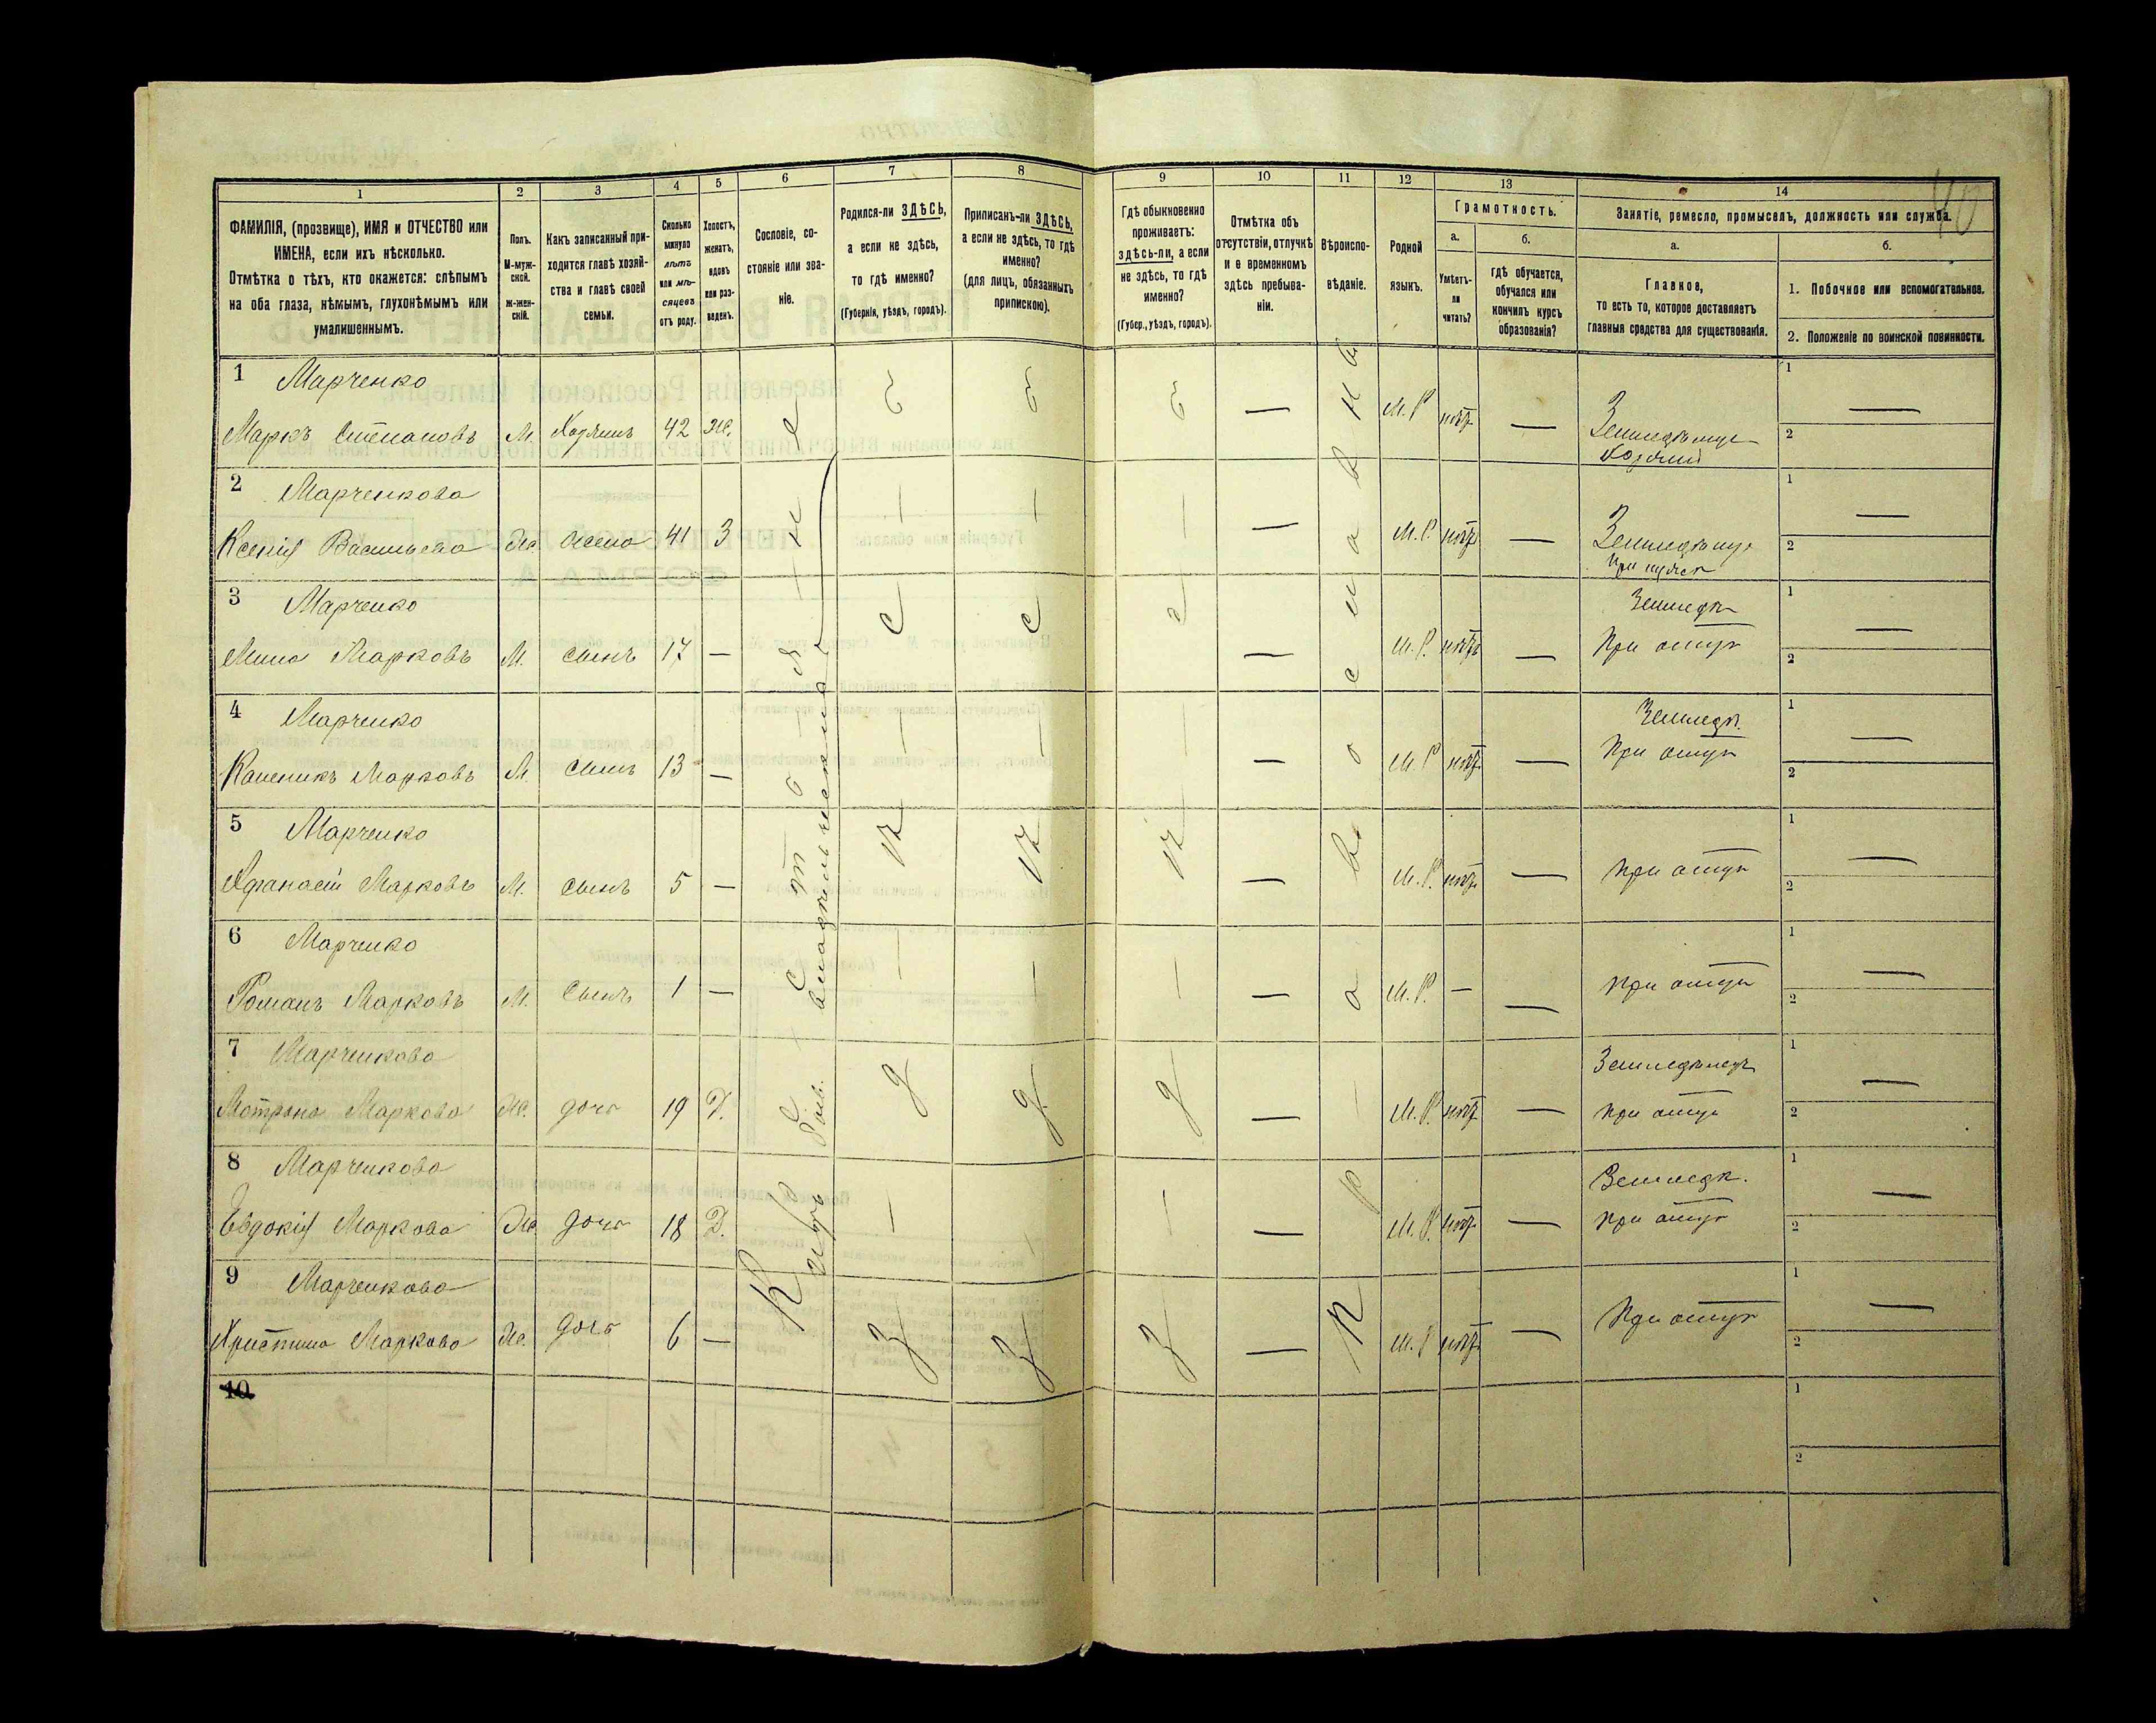 40
1
2
3
4
5
6
7
8
9
10
11
12
13
14
ФАМИЛІЯ, (прозвище), ИМЯ и ОТЧЕСТВО или
ИМЕНА, если ихъ нѣсколько.
Отмѣтка о тѣхъ, кто окажется: слѣпымъ
на оба глаза, нѣмымъ, глухонѣмымъ или
умалишеннымъ.
Полъ.
М-муж-
ской.
Ж-жен-
скій.
Какъ записанный при-
ходится главѣ хозяй-
ства и главѣ своей
семьи.
Сколько
минуло
лѣтъ
или мѣ-
сяцевъ
отъ роду.
Холостъ,
женатъ,
вдовъ
или раз-
веденъ.
Сословіе, со-
стояніе или зва-
ніе.
Родился-ли ЗДѢСЬ,
а если не здѣсь,
то гдѣ именно?
(Губернія, уѣздъ, городъ).
Приписанъ-ли ЗДѢСЬ,
а если не здѣсь, то гдѣ
именно?
(для лицъ, обязанныхъ
припискою).
Гдѣ обыкновенно
проживаетъ:
здѣсь-ли, а если
не здѣсь, то гдѣ
именно?
(Губер., уѣздъ, городъ).
Отмѣтка объ
отсутствіи, отлучкѣ
и о временномъ
здѣсь пребыва-
ніи.
Вѣроиспо-
вѣданіе.
Родной
языкъ.
Грамотность.
а.
Умѣетъ-
ли
читать?
б.
гдѣ обучается,
обучался или
кончилъ курсъ
образованія?
Занятіе, ремесло, промыселъ, должность или служба.
а.
Главное,
то есть то, которое доставляетъ
главныя средства для существованія.
б.
1. Побочное или вспомогательное.
2. Положеніе по воинской повинности.
Крестьяне
владѣльческихъ
Здѣсь
Здѣсь
Здѣсь
Православная
1 Марченко
Маркъ Степановъ М. Хозяинъ 42 Же. — М.Р. нѣтъ — Земледѣлецъ —
Хозяинъ
1
2
2 Марченкова
Ксенія Васильева Же жена 41 З — М.Р. нѣтъ — Земледѣлец —
При мужѣ
1
2
3 Марченко
Мина Марковъ М. сынъ 17 — — М.Р. нѣтъ — Земледѣ —
При отцѣ
1
2
4 Марченко
Марковъ М. сынъ 13 — — М.Р нѣтъ — Земледѣ. —
При отцѣ
1
2
5 Марченко
Афанасій Марковъ М. сынъ 5 — — М.Р. нѣтъ — При отцѣ —
1
2
6 Марченко
Романъ Марковъ М. сынъ 1 — — М.Р. — — При отцѣ —
1
2
7 Марченкова
Мотрона Маркова Же. дочь 19 Д. — М.Р. нѣтъ — Земледѣлецъ —
при отцѣ
1
2
8 Марченкова
Евдокія Маркова Же дочь 18 Д. — М.Р. нѣтъ — Земледѣ. —
при отцѣ
1
2
9 Марченкова
Христина Маркова Же. дочь 6 — — М.Р нѣтъ — При отцѣ —
1
2
10
1
2